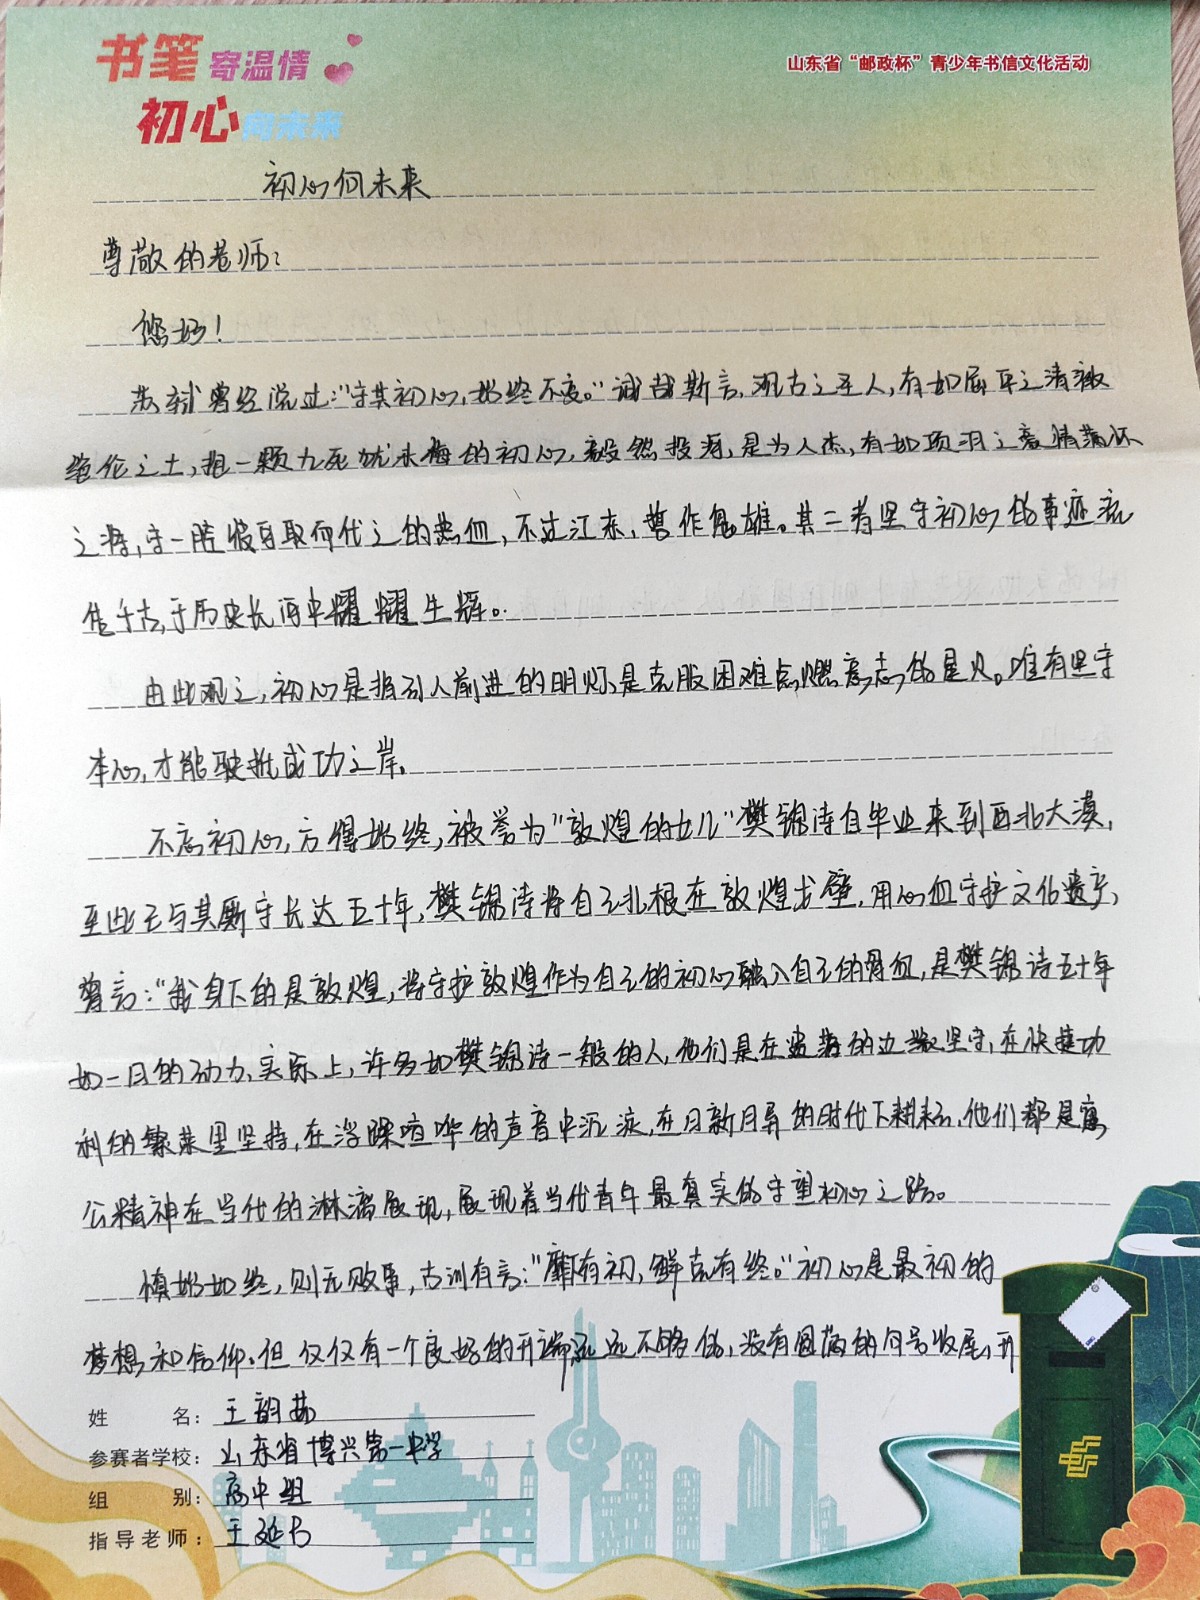 书笔寄温情
初心向未来
山东省“邮政杯”青少年书信文化活动
初心向未来
尊敬的老师：
您好！
苏轼曾经说过：“守其初心，始终不变。”诚哉斯言，观古之圣人，有如屈平之清流
绝伦之士，抱一颗九死犹未悔的初心，毅然投源，是为人杰，有如项羽之豪情满怀
之将，守一腔彼可取而代之的热血，不过江东，誓作鬼雄。其二者坚守初心的事迹流
传千古，于历史长河中耀耀生辉。
由此观之，初心是指引人前进的明灯，是克服困难点燃意志的星火。唯有坚守
本心，才能驶抵成功之岸。
不忘初心，方得始终，被誉为“敦煌的女儿”樊锦诗自毕业来到西北大漠，
至此已与其厮守长达五十年，樊锦诗将自己扎根在敦煌戈壁，用心血守护文化遗产，
曾言：“我身下的是敦煌，将守护敦煌作为自己的初心融入自己的骨血，是樊锦诗五十年
如一日的动力，实际上，许多如樊锦诗一般的人，他们是在寂寞的边缘坚守，在快捷功
利的繁荣里坚持，在浮躁喧哗的声音中沉淀，在日新月异的时代下耕耘，他们都是愚
公精神在当代的淋漓展现，展现着当代青年最真实的守望初心之路。
慎始如终，则无败事，古训有言：“靡有初，鲜克有终。”初心是最初的
梦想和信仰，但仅仅有一个良好的开端远远不够的，没有圆满的句号收尾，开
姓名：王韵茹
参赛者学校：山东省博兴第一中学
组别：高中组
指导老师：王延书